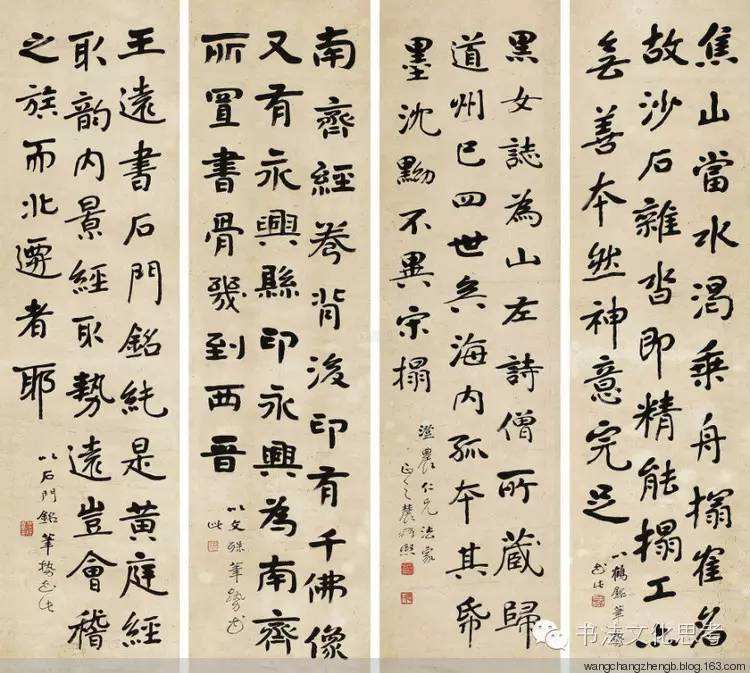 焦山當水渴乘舟搨隺名
故沙石雜沓即精能搨工亦
無善本然神意完足
以鶴銘筆勢
書此
黑女誌為山左詩僧所藏歸
道州已四世矣海内孤本其帋
墨沈黝不異宋搨
澄農仁兄法家
正之農髯熙
南齊經卷背後印有千佛像
又有永興縣印永興為南齊
所置書骨幾到西晉
以文殊筆勢書
此
王遠書石門銘純是黃庭經
取韻内景經取勢遠豈會稽
之族而北遷者耶
以石門銘筆勢書此
书法文化思考
wangchangzhengb.blog.163.com